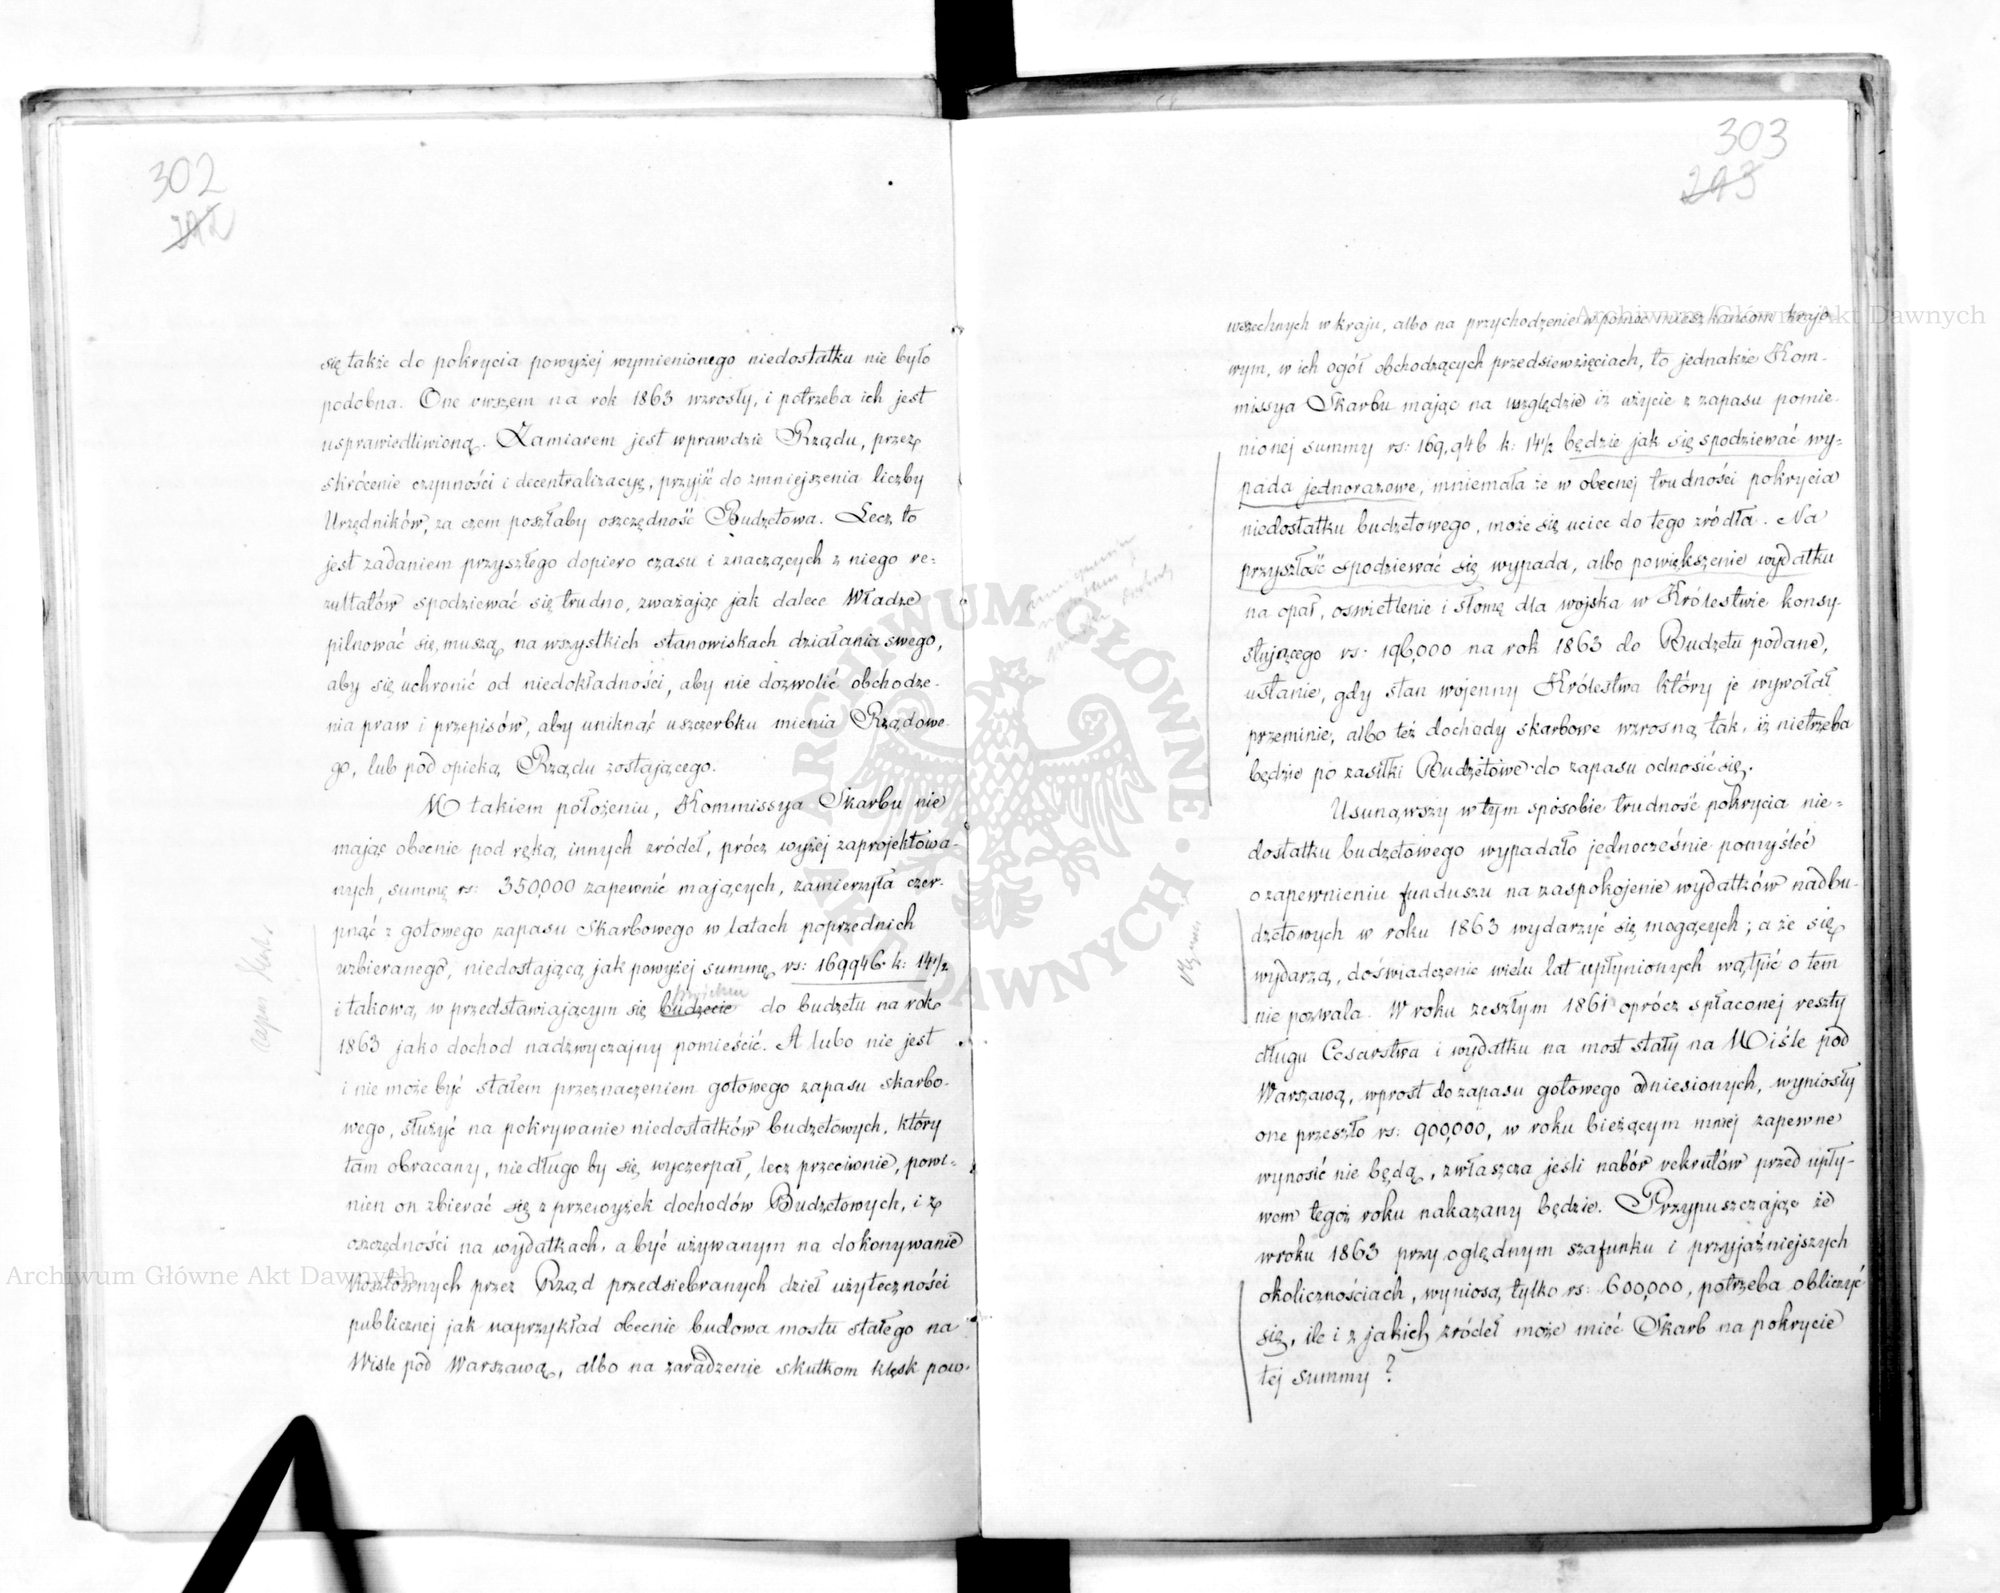 302
się także do pokrycia powyżej wymienionego niedostatku nie było
podobna. One owszem na rok 1863 wzrosły, i potrzeba ich jest
usprawiedliwioną. Zamiarem jest wprawdzie Rządu, przez
skrócenie czynności i decentralizacyę, przyjść do zmniejszenia liczby
Urzędników, za czem poszłaby oszczędność Budżetowa. Lecz to
jest zadaniem przyszłego dopiero czasu i znaczących z niego re-
zultatów spodziewać się trudno, zważając jak dalece Władze
pilnować się muszą na wszystkich stanowiskach działania swego,
aby się uchronić od niedokładności, aby nie dozwolić obchodze-
nia praw i przepisów, aby uniknąć uszczerbku mienia Rządowe-
go, lub pod opieką Rządu zostającego.
W takiem położeniu, Kommissya Skarbu nie
mając obecnie pod ręką innych zródeł, prócz wyżej zaprojektowa-
nych, summę rs: 350,000 zapewnić mających, zamierzyła czer-
pnąć z gotowego zapasu Skarbowego w latach poprzednich
uzbieranego, niedostającą jak powyżej summę rs: 169946 k: 14½
i takową w przedstawiającym się budżecie do budżetu na rok
1863 jako dochod nadzwyczajny pomieścić. A lubo nie jest
i nie może być stałem przeznaczeniem gotowego zapasu skarbo-
wego, służyć na pokrywanie niedostatków budżetowych, który
tam obracany, niedługo by się wyczerpał, lecz przeciwnie, powi-
nien on zbierać się z przewyżek dochodów Budżetowych, i z
oszczędności na wydatkach, a być używanym na dokonywanie
kosztownych przez Rząd przedsiebranych dzieł użyteczności
publicznej jak naprzykład obecnie budowa mostu stałego na
Wiśle pod Warszawą, albo na zaradzenie skutkom klęsk pow-
303
213
wszechnych w kraju, albo na przychodzenie w pomoc mieszkańcom krajo-
wym, w ich ogół obchodzących przedsiewzięciach, to jednakże Kom-
missya Skarbu mając na względzie iż użycie z zapasu pomie-
nionej summy rs: 169,946 k: 14½ będzie jak się spodziewać wy-
pada jednorazowe, mniemała że w obecnej trudności pokrycia
niedostatku budżetowego, może się uciec do tego zródła. Na
przyszłość spodziewać się wypada, albo powiększenie wydatku
na opał, oswietlenie i słomę dla wojska w Królestwie konsy-
stującego rs: 196,000 na rok 1863 do Budżetu podane,
ustanie, gdy stan wojenny Królestwa który je wywołał
przeminie, albo też dochody skarbowe wzrosną tak, iż nietrzeba
będzie po zasiłki Budżetowe do zapasu odnosić się.
Usunąwszy w tym sposobie trudność pokrycia nie-
dostatku budżetowego wypadało jednocześnie pomyśleć
o zapewnieniu funduszu na zaspokojenie wydatków nadbu-
dżetowych w roku 1863 wydarzyć się mogących; a że się
wydarzą, doświadczenie wielu lat upłynionych wątpić o tem
nie pozwala. W roku zeszłym 1861 oprócz spłaconej reszty
długu Cesarstwa i wydatku na most stały na Wiśle pod
Warszawą, wprost do zapasu gotowego odniesionych, wyniosły
one przeszło rs: 900,000, w roku bieżącym mniej zapewne
wynosić nie będą, zwłaszcza jeśli nabór rekrutów przed upły-
wem tegoż roku nakazany będzie. Przypuszczając że
w roku 1863 przy oględnym szafunku i przyjaźniejszych
okolicznościach, wyniosą tylko rs: 600,000, potrzeba obliczyć
się, ile i z jakich zródeł może mieć Skarb na pokrycie
tej summy?
Archiwum Główne Akt Dawnych
Archiwum Główne Akt Dawnych
ARCHIWUM GŁÓWNE · AKT DAWNYCH ·